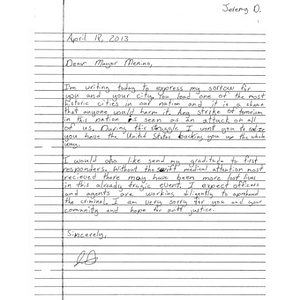 Jeremy D.
April 18, 2013
Dear Mayor Menino,
I'm writing today to express my sorrow for
you and your city. You lead one of the most
historic cities in our nation and it is a shame
that anyone would harm it. Any strike of terrorism
in this nation is seen as an attack on all
of us. During this struggle I want you to
you have the United States backing you up the whole
way.
I would also like send my gratitude to first
responders. Without the swift medical attention most
recieved there may have been more lost lives
in this already tragic event. I expect officers
and agents are working diligently to apprehend
the criminal. I am very sorry for you and your
community and hope for swift justice.
Sincerely,